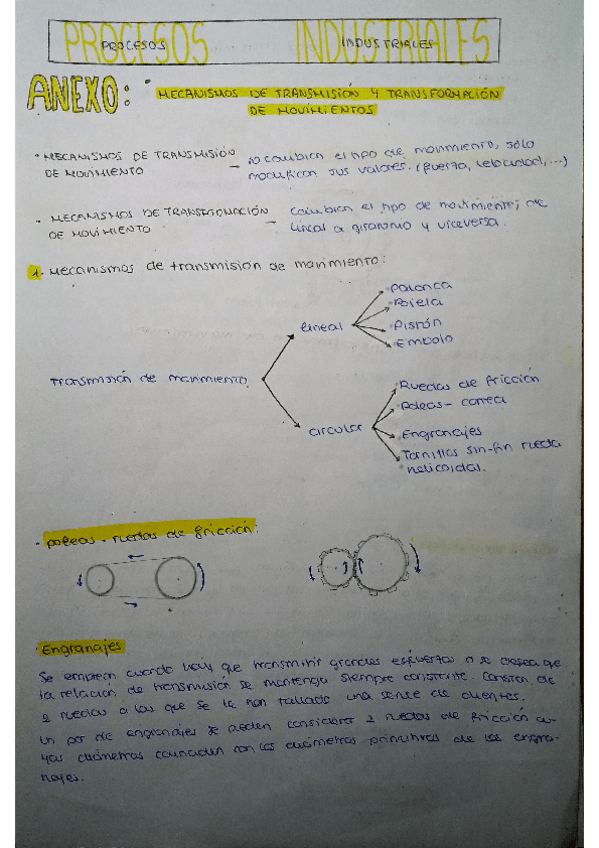 PROCESOS INDUSTRIALES
PROCESOS INDUSTRIALES
ANEXO: MECANISMOS DE TRANSMISIÓN Y TRANSFORMACIÓN
DE MOVIMIENTOS
· MECANISMOS DE TRANSMISIÓN
DE MOVIMIENTO
→ no cambian el tipo de movimiento, sólo
modifican sus valores. (fuerza, velocidad,...)
· MECANISMOS DE TRANSFORMACIÓN
DE MOVIMIENTO
→ Cambian el tipo de movimiento; de
lineal a giratorio y viceversa.
1. Mecanismos de transmisión de movimiento:
Transmisión de movimiento
lineal
· Palanca
· Biela
· Pistón
· Embolo
circular
· Ruedas de fricción
· Poleas - correa
· Engranajes
· Tornillos sin-fin rueda
helicoidal.
· poleas - ruedas de fricción:
· Engranajes
Se emplean cuando hay que transmitir grandes esfuerzos o se desea que
la relación de transmisión se mantenga siempre constante. Constan de
2 ruedas a las que se le han tallado una serie de dientes.
Un par de engranajes se pueden considerar 2 ruedas de fricción cu-
yos diámetros coinciden con los diámetros primitivos de los engra-
najes.